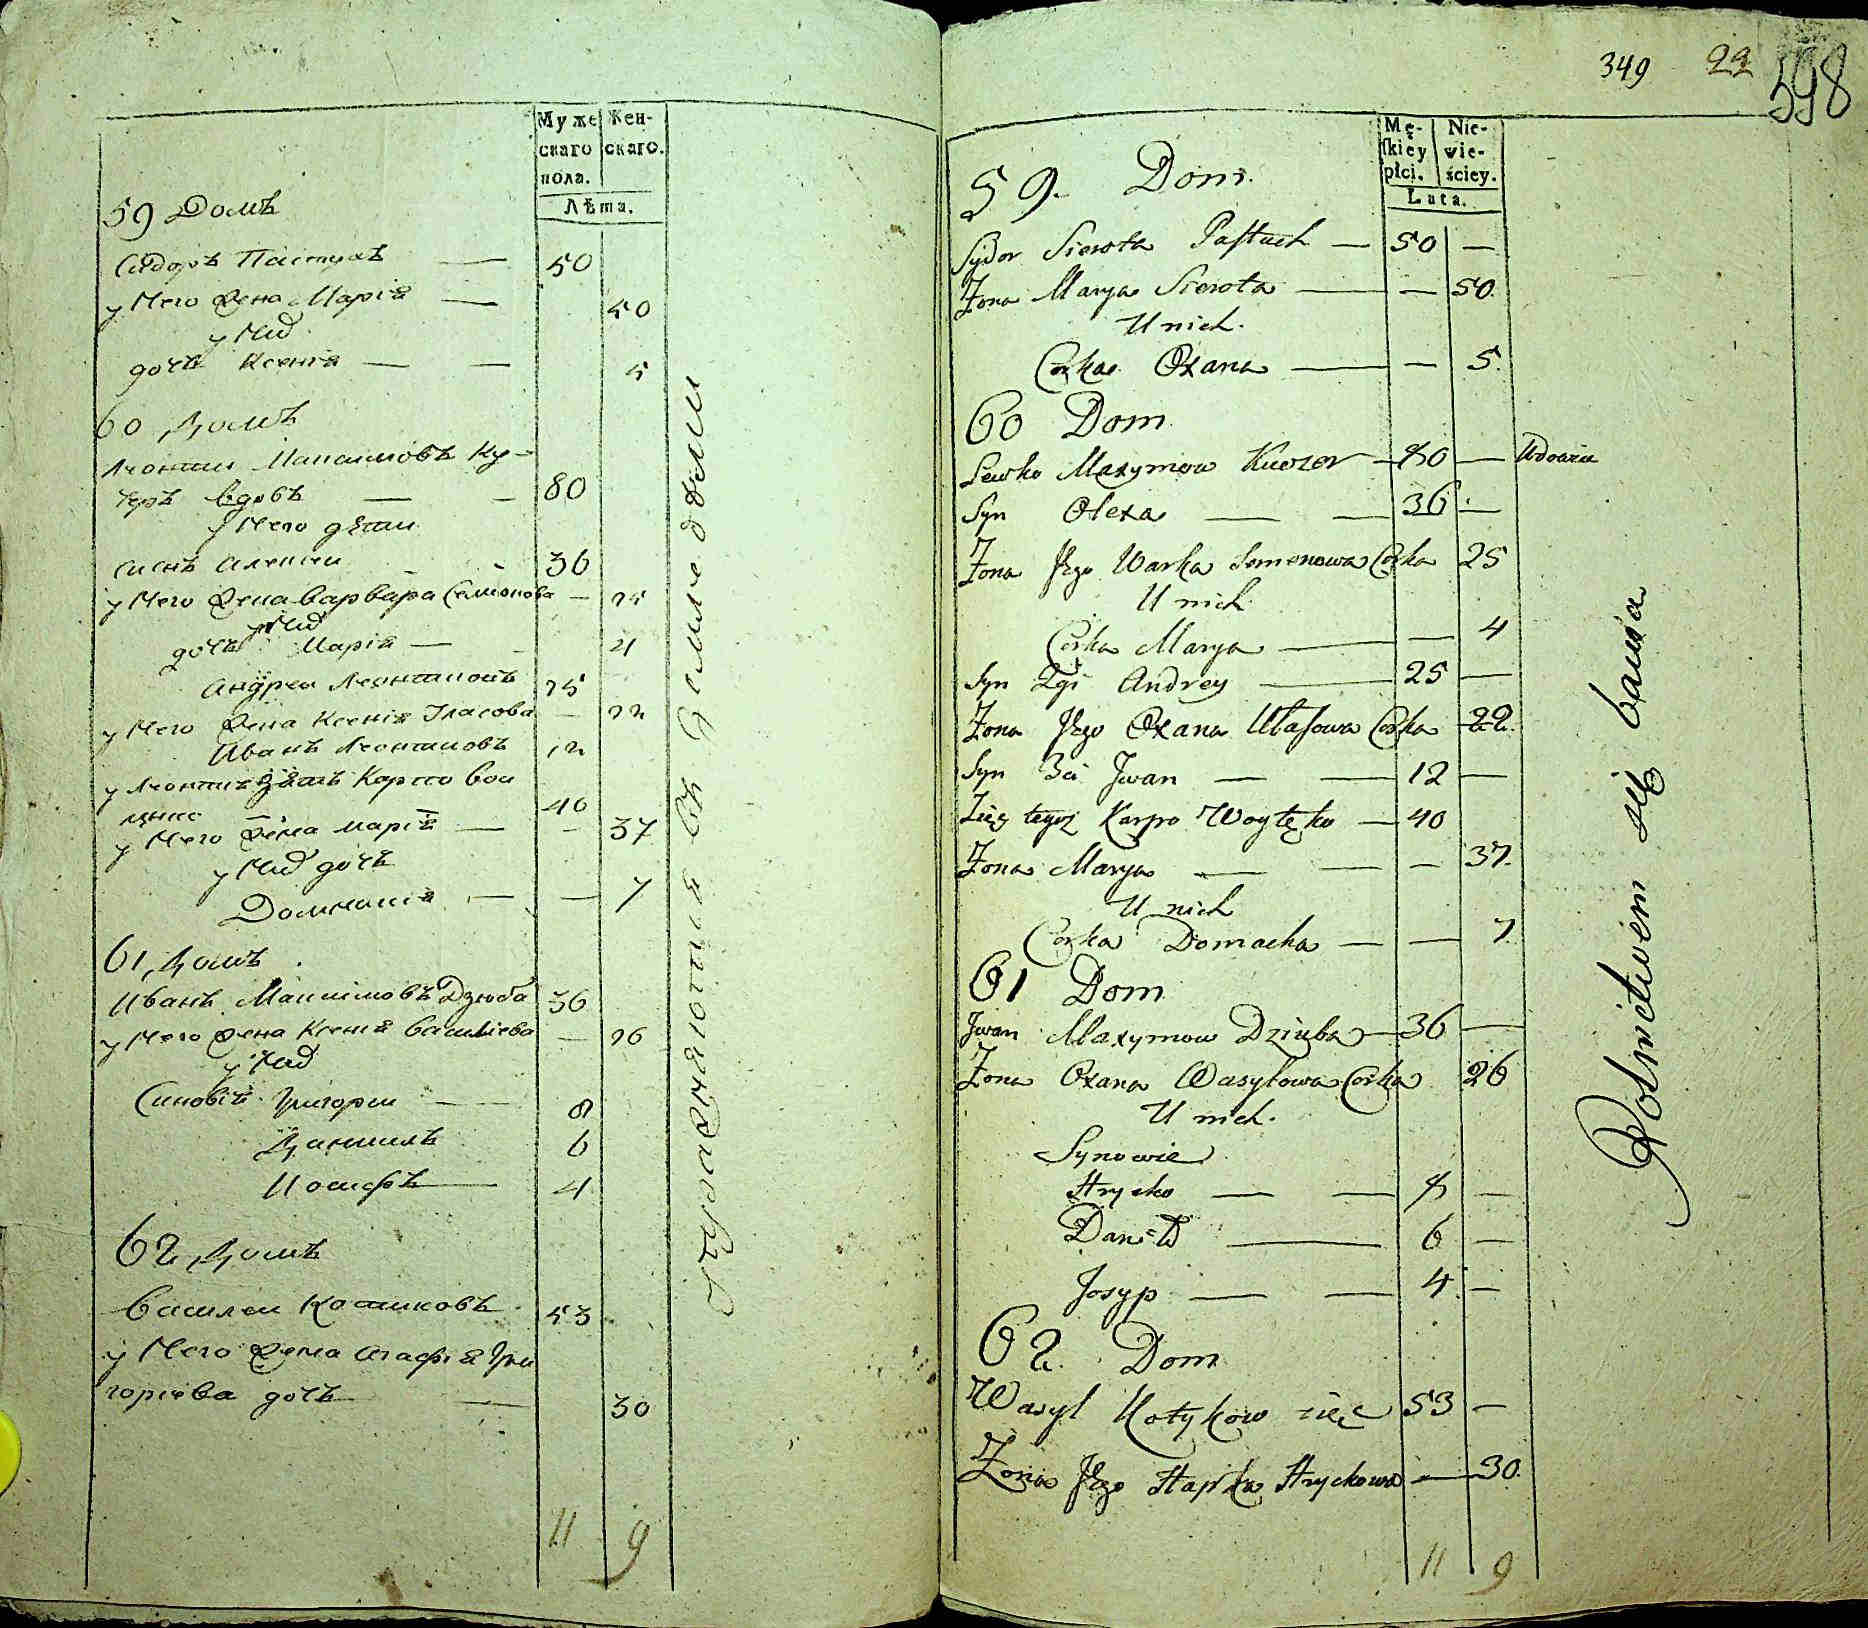 Муже
скаго
пола.
Жен-
скаго.
Лѣта.
59 Домъ
Сидоръ Пастухъ — 50
у Него Жена Марія — 50
у Них
дочь Ксенія — — 5
60 Домъ
Леонтий Максимовъ Ку-
черъ вдовъ — — 80
у Него дѣти
синъ Алексей 36
у Него Жена Варвара Семіонова — 25
у Них
дочь Марія — 4
Андреи Леонтиовъ 25
у Него Жена Ксенія Власова — 22
Иванъ Леонтиовъ 12
у Леонтия зять Карпо Вои
40
у Него Жена Марія — — 37
у Них дочь
Домникія — — 7
61 Домъ
Иванъ Максимовъ Дзюба 36
у Него Жена Ксенія Василіева — 26
у Них
Синовія Григореи — 8
Даниилъ 6
Иосифъ — 4
62 Домъ
Василеи Котиковъ 53
у Него Жена Агафія Гри
горіева дочь — 30
11 9
Упражняются въ Земледѣлии
349 22 598
Mę-
ſkiey
płci.
Nie-
wie-
ściey.
Lata.
59. Dom.
Sydor Sierota Paſtuch — 50 —
Żona Marya Sierota — — 50.
U nich.
Corka Oxana — — 5.
60 Dom
Lewko Maxymow Kuczer — 80 — Udowiec
Syn Olexa — — 36 —
Żona Jego Warka Semenowa Corka 25
U nich
Corka Marya — — 4
Syn 2gi Andrey — 25 —
Żona Jego Oxana Ułaſowa Corka — 22.
Syn 3ci Jwan — — 12 —
Zięć tegoż Karpo Woytęko — 40
Żona Marya — — — 37.
U nich
Corka Domacha — — 7.
61 Dom
Jwan Maxymow Dziuba — 36 —
Żona Oxana Wasylowa Corka 26
U nich.
Synowie
Hrycko — — 8 —
Daniło — 6 —
Josyp — — 4. —
62. Dom
Wasyl Kotykow zięć 53 —
Żona Jego Hapka Hryckowa — 30.
11 9
Rolnictwem się bawią